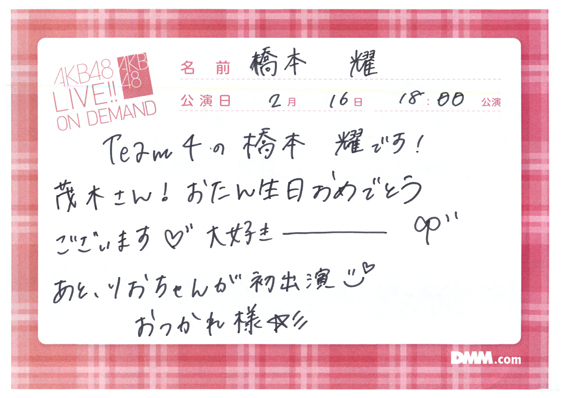 AKB48
LIVE!!
ON DEMAND
AKB
48
名 前 橋本 耀
公演日 2月 16日 18:00 公演
Team 4の 橋本 耀です!
茂木さん! おたん生日おめでとう
ございます♡ 大好き―――
あと、りおちゃんが初出演
おつかれ様☆彡
DMM.com